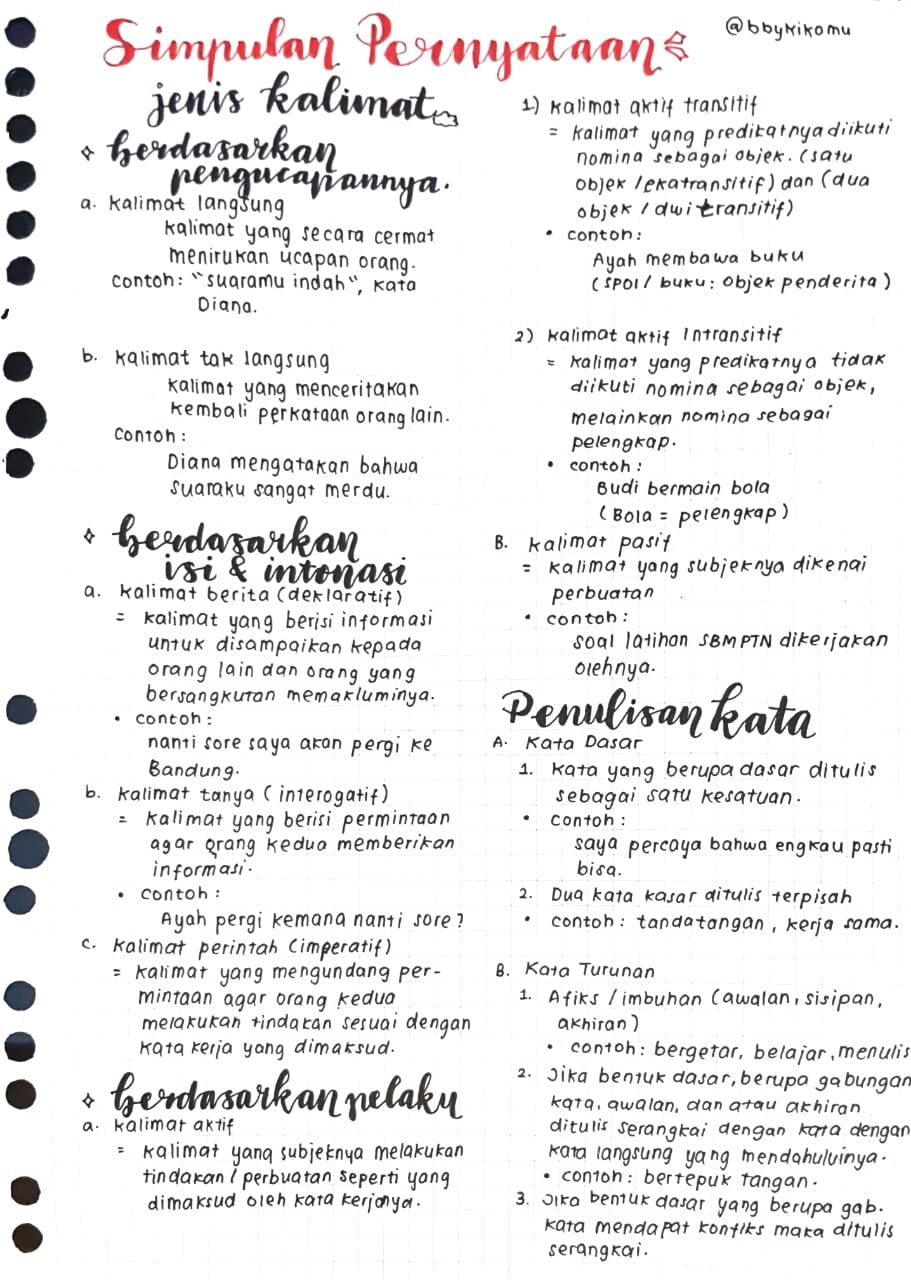 @bbykikomu
Simpulan Pernyataan
jenis kalimat
berdasarkan
pengucapannya.
a. Kalimat langsung
Kalimat yang secara cermat
menirukan ucapan orang.
Contoh: "suaramu indah", Kata
Diana.
b. Kalimat tak langsung
Kalimat yang menceritakan
kembali perkataan orang lain.
Contoh:
Diana mengatakan bahwa
suaraku sangat merdu.
berdasarkan
isi & intonasi
a. kalimat berita (deklaratif)
= kalimat yang berisi informasi
untuk disampaikan kepada
orang lain dan orang yang
bersangkutan memakluminya.
• contoh:
nanti sore saya akan pergi ke
Bandung.
b. kalimat tanya (interogatif)
= kalimat yang berisi permintaan
agar orang kedua memberikan
informasi.
• contoh:
Ayah pergi kemana nanti sore?
c. kalimat perintah (imperatif)
= kalimat yang mengundang per-
mintaan agar orang kedua
melakukan tindakan sesuai dengan
kata kerja yang dimaksud.
berdasarkan pelaku
a. kalimat aktif
= kalimat yang subjeknya melakukan
tindakan / perbuatan seperti yang
dimaksud oleh kata kerjanya.
1) kalimat aktif transitif
= kalimat yang predikatnya diikuti
nomina sebagai objek. (satu
objek / ekatransitif) dan (dua
objek / dwitransitif)
• contoh:
Ayah membawa buku
(SPOI / buku: objek penderita)
2) kalimat aktif Intransitif
= kalimat yang predikatnya tidak
diikuti nomina sebagai objek,
melainkan nomina sebagai
pelengkap.
• contoh:
Budi bermain bola
(Bola = pelengkap)
B. kalimat pasif
= kalimat yang subjeknya dikenai
perbuatan
• contoh:
soal latihan SBMPTN dikerjakan
olehnya.
Penulisan kata
A. Kata Dasar
1. Kata yang berupa dasar ditulis
sebagai satu kesatuan.
• contoh:
saya percaya bahwa engkau pasti
bisa.
2. Dua kata kasar ditulis terpisah
• contoh: tandatangan, kerja sama.
B. Kata Turunan
1. Afiks / imbuhan (awalan, sisipan,
akhiran)
• contoh: bergetar, belajar, menulis
2. Jika bentuk dasar, berupa gabungan
kata, awalan, dan atau akhiran
ditulis serangkai dengan kata dengan
kata langsung yang mendahuluinya.
• contoh: bertepuk tangan.
3. Jika bentuk dasar yang berupa gab.
kata mendapat konfiks maka ditulis
serangkai.